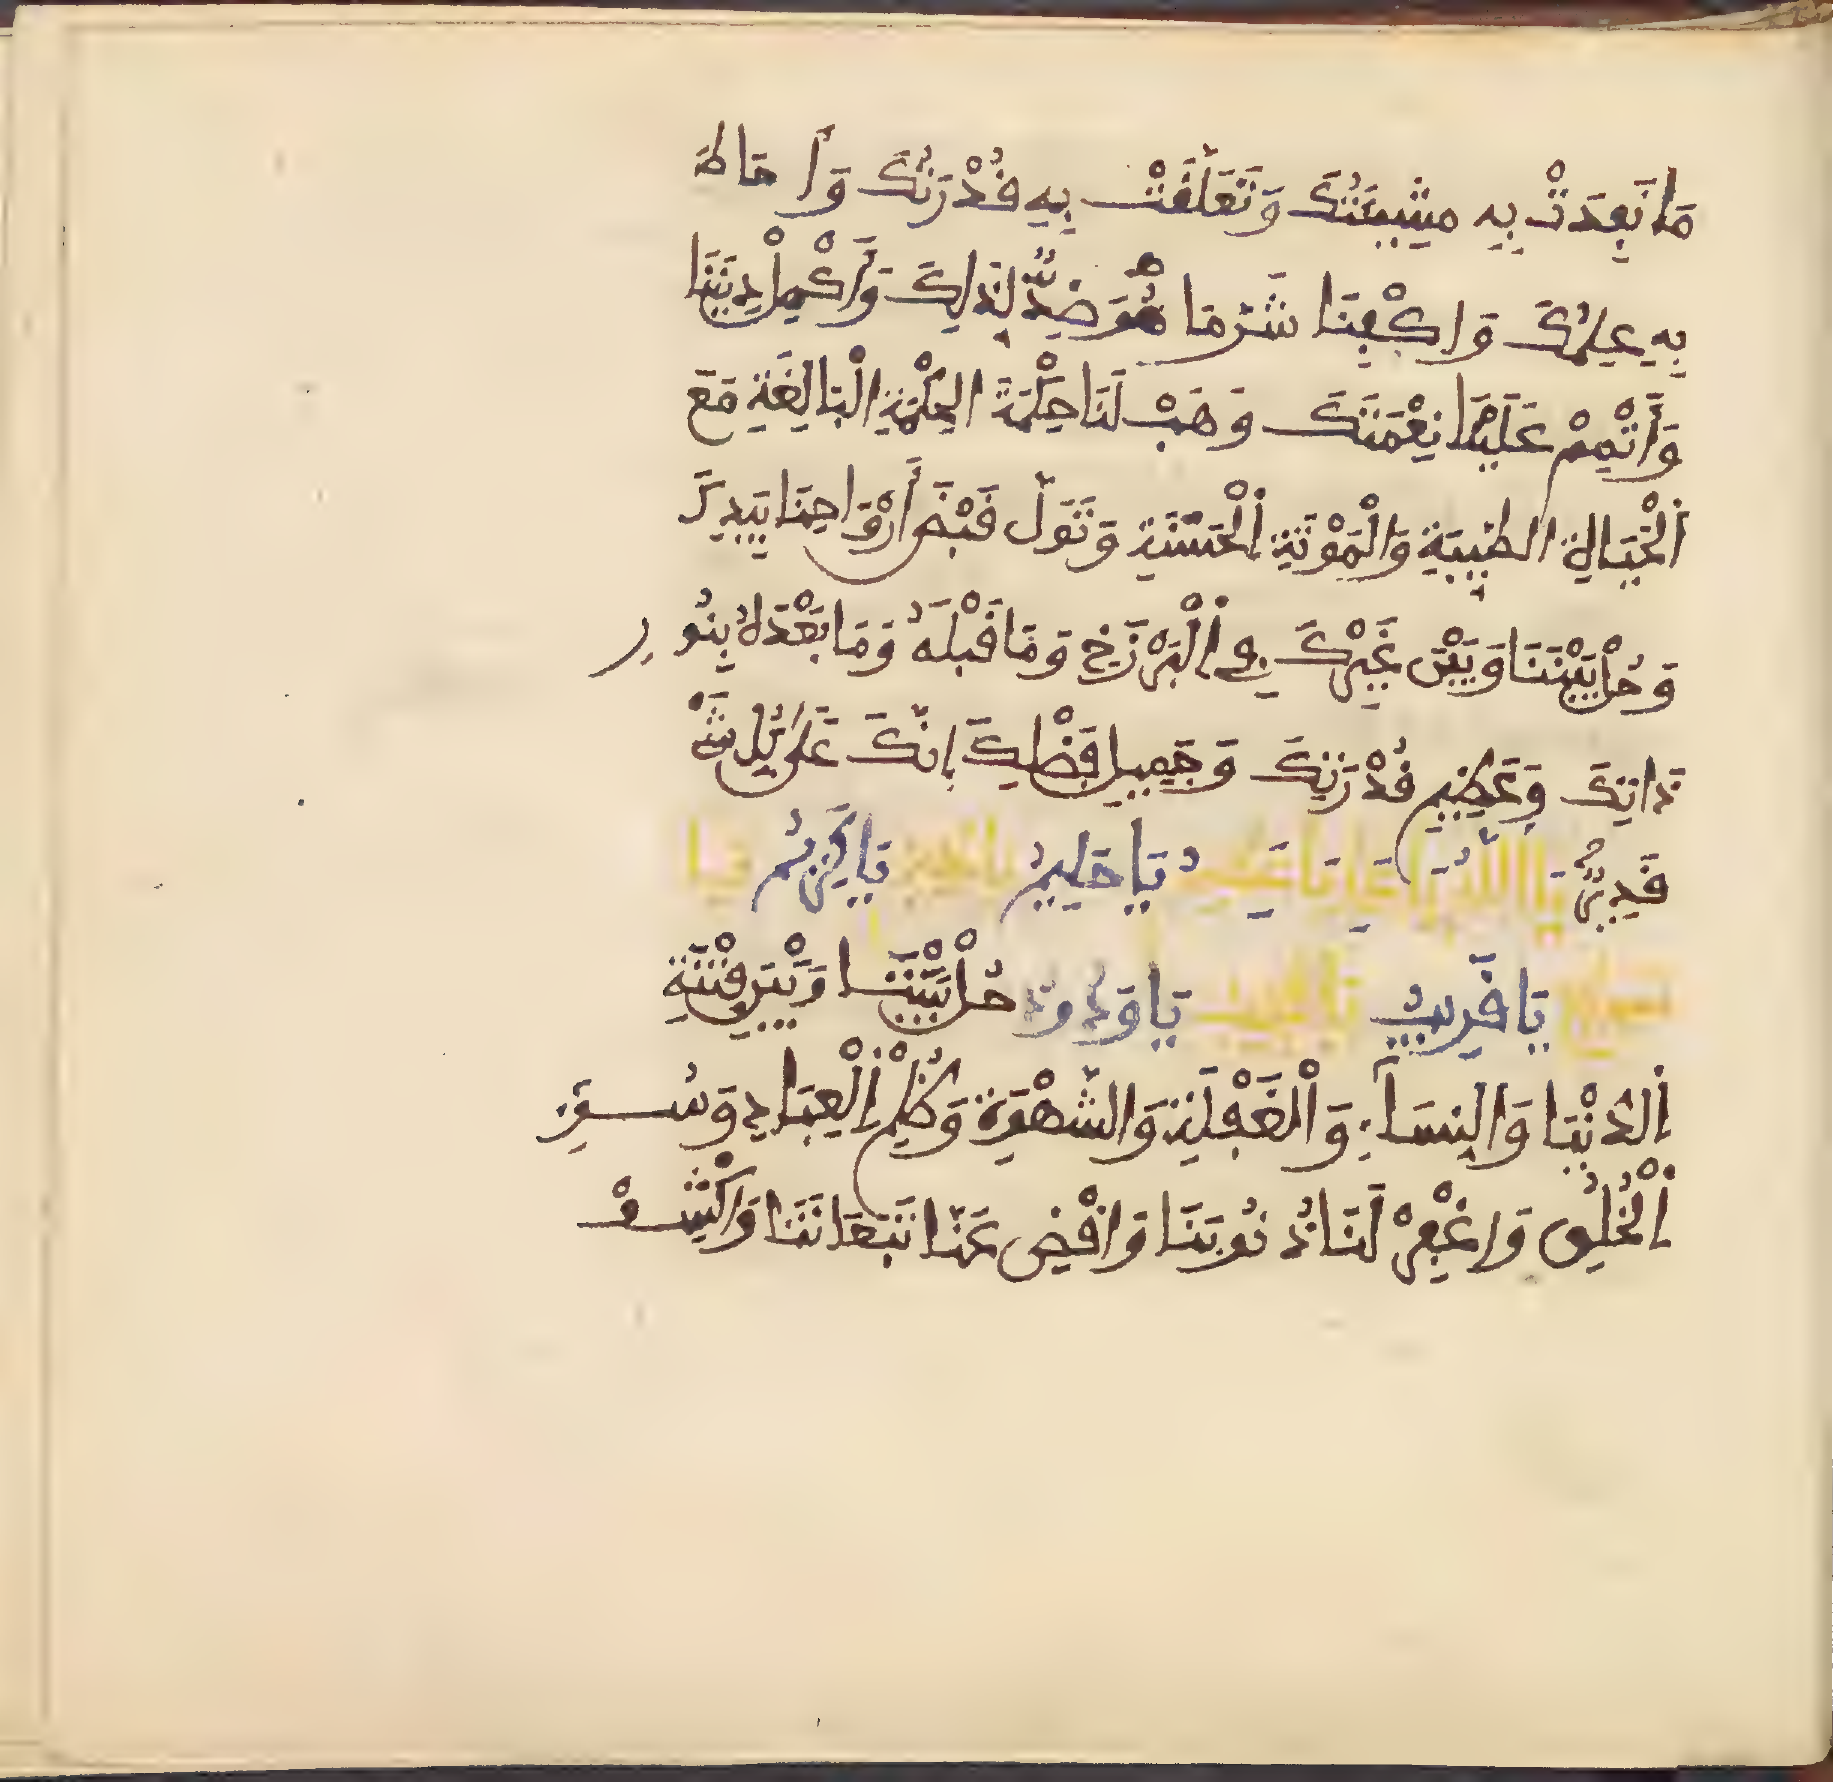 مَا نَفِدَتْ بِهِ مَشِيئَتُكَ وَتَعَلَّقَتْ بِهِ قُدْرَتُكَ وَأَحَاطَ
بِهِ عِلْمُكَ وَاكْفِنَا شَرَّ مَا هُوَ ضِدٌّ لِذَلِكَ وَأَكْمِلْ دِينَنَا
وَأَتْمِمْ عَلَيْنَا نِعْمَتَكَ وَهَبْ لَنَا حِكْمَةَ الْحِكْمَةِ الْبَالِغَةِ مَعَ
الْحَيَاةِ الطَّيِّبَةِ وَالْمَوْتَةِ الْحَسَنَةِ وَتَوَلَّ قَبْضَ أَرْوَاحِنَا بِيَدِكَ
وَحُلْ بَيْنَنَا وَبَيْنَ غَيْرِكَ فِي الْبَرْزَخِ وَمَا قَبْلَهُ وَمَا بَعْدَهُ بِنُورِ
ذَاتِكَ وَعَظِيمِ قُدْرَتِكَ وَجَمِيلِ فَضْلِكَ إِنَّكَ عَلَى كُلِّ شَيْءٍ
قَدِيرٌ يَا اللَّهُ يَا عَلِيُّ يَا عَظِيمُ يَا حَلِيمُ يَا كَرِيمُ يَا
سَمِيعُ يَا قَرِيبُ يَا مُجِيبُ يَا وَدُودُ حُلْ بَيْنَنَا وَبَيْنَ فِتْنَةِ
الدُّنْيَا وَالنِّسَاءِ وَالْغَفْلَةِ وَالشَّهْوَةِ وَظُلْمِ الْعِبَادِ وَسُوءِ
الْخُلُقِ وَاغْفِرْ لَنَا ذُنُوبَنَا وَاقْضِ عَنَّا تَبَعَاتِنَا وَاكْشِفْ